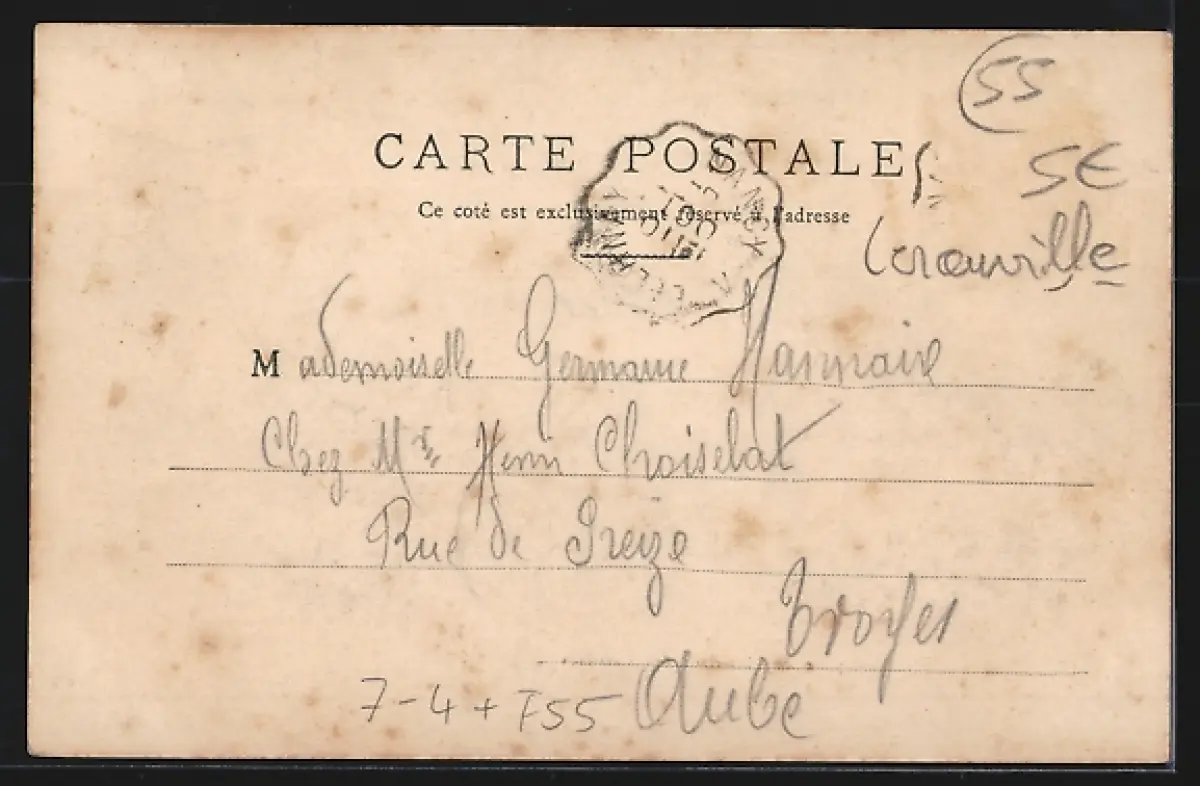 55
CARTE POSTALE
5€
Ce coté est exclusivement réservé à l'adresse
Lérouville
Mademoiselle Germaine
Chez Mr Henri Choiselat
Rue de Preize
Troyes
Aube
7-4 + F55